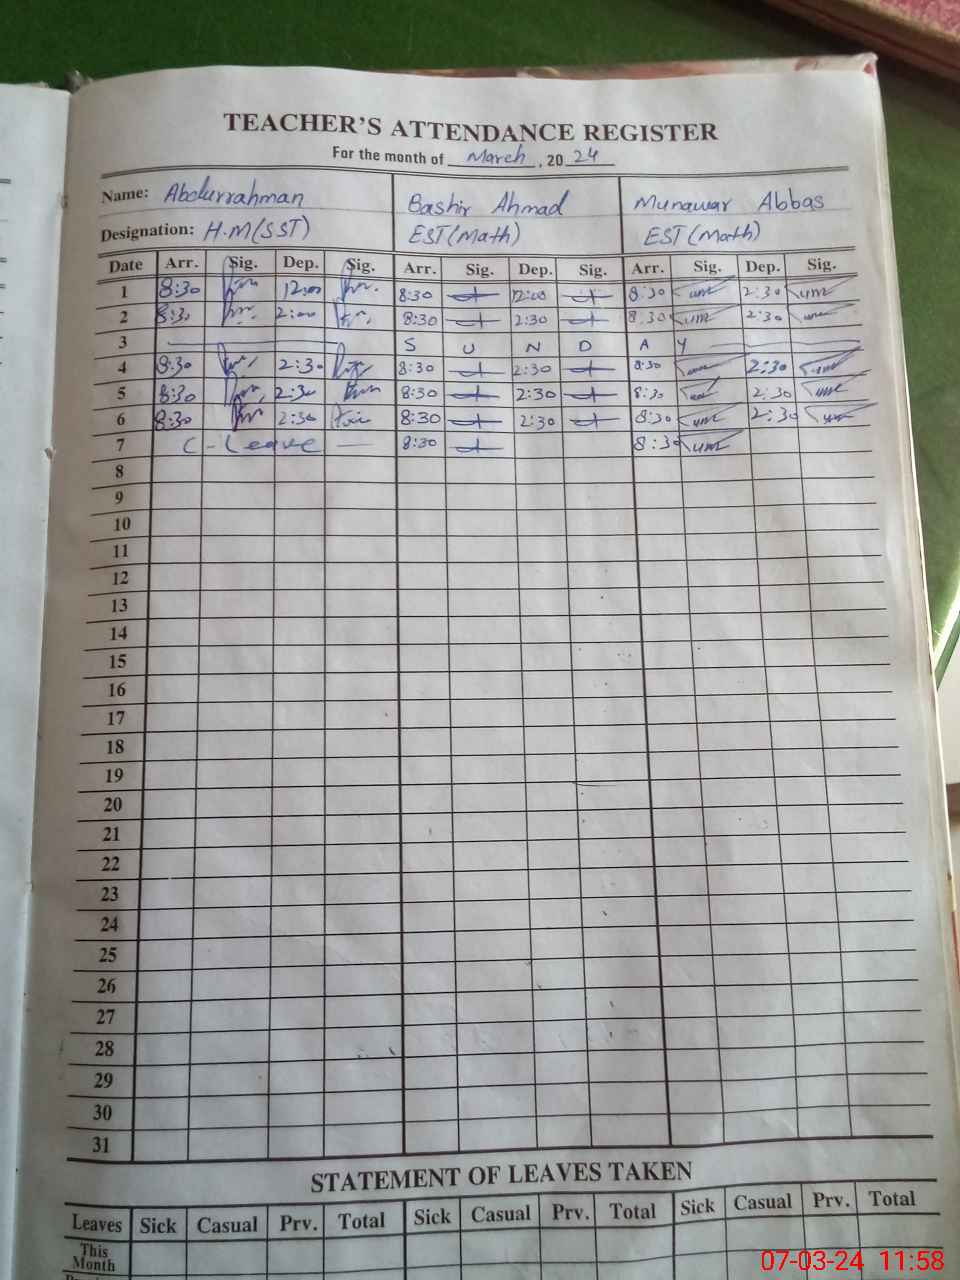 TEACHER'S ATTENDANCE REGISTER
For the month of March, 2024
Name: Abdurrahman Bashir Ahmad Munawar Abbas
Designation: H.M(SST) EST(Math) EST(Math)
Date Arr. Sig. Dep. Sig. Arr. Sig. Dep. Sig. Arr. Sig. Dep. Sig.
1 8:30 12:00 8:30 12:00 8:30 2:30
2 8:30 2:00 8:30 2:30 8.30 2:30
3 S U N D A Y
4 8:30 2:30 8:30 2:30 8:30 2:30
5 8:30 2:30 8:30 2:30 8:30 2:30
6 8:30 2:30 8:30 2:30 8:30 2:30
7 C-Leave 8:30 8:30
8
9
10
11
12
13
14
15
16
17
18
19
20
21
22
23
24
25
26
27
28
29
30
31
STATEMENT OF LEAVES TAKEN
Leaves Sick Casual Prv. Total Sick Casual Prv. Total Sick Casual Prv. Total
This
Month
07-03-24 11:58